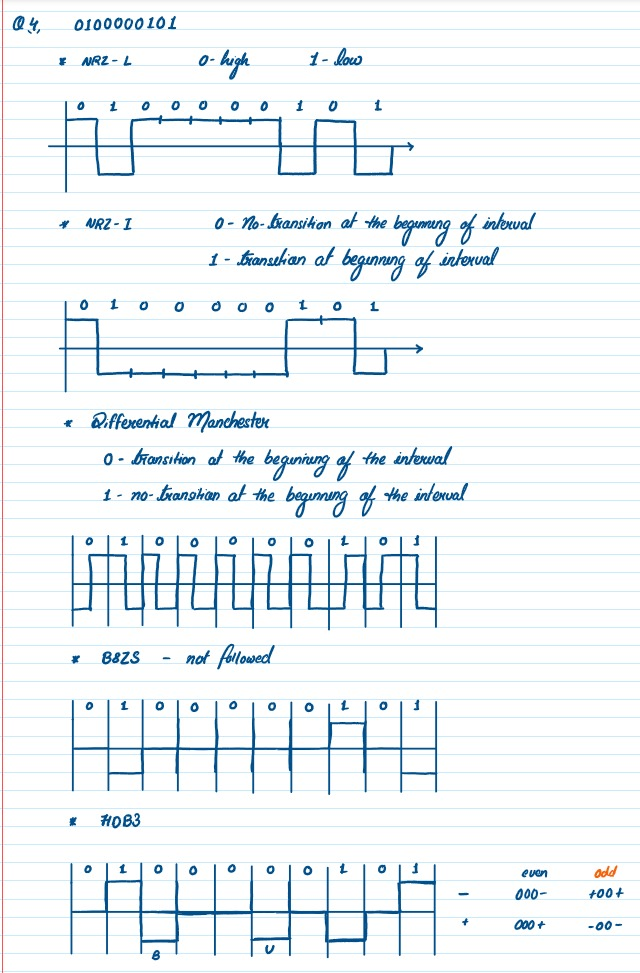 Q4. 0100000101
* NRZ-L 0-high 1-low
0 1 0 0 0 0 0 1 0 1
* NRZ-I 0- No-transition at the beginning of interval
1- transition at beginning of interval
0 1 0 0 0 0 0 1 0 1
* Differential Manchester
0- transition at the beginning of the interval
1- no-transition at the beginning of the interval
0 1 0 0 0 0 0 1 0 1
* B8ZS - not followed
0 1 0 0 0 0 0 1 0 1
* HDB3
0 1 0 0 0 0 0 1 0 1
even odd
- 000- +00+
+ 000+ -00-
B V